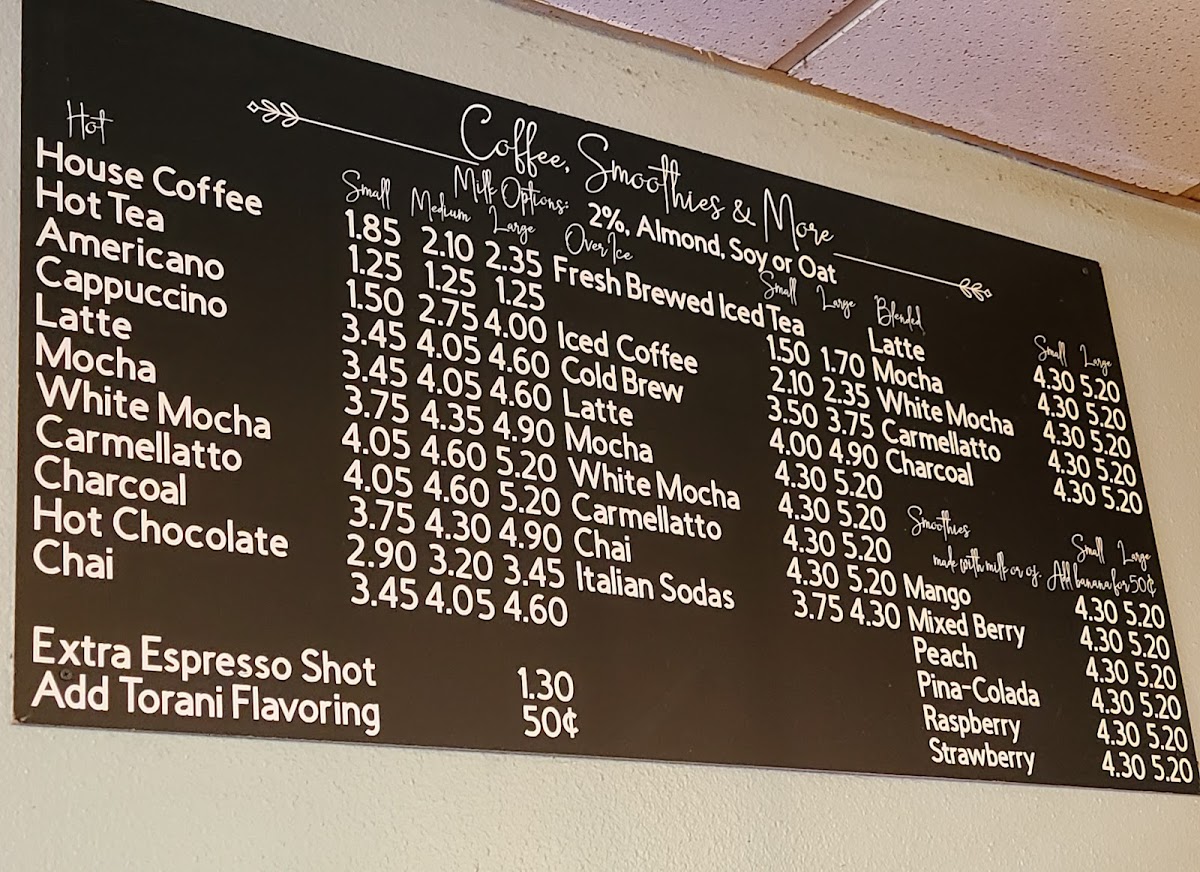 Coffee, Smoothies & More
Milk Options: 2%, Almond, Soy or Oat
Hot Small Medium Large
House Coffee 1.85 2.10 2.35
Hot Tea 1.25 1.25 1.25
Americano 1.50 2.75 4.00
Cappuccino 3.45 4.05 4.60
Latte 3.45 4.05 4.60
Mocha 3.75 4.35 4.90
White Mocha 4.05 4.60 5.20
Carmellatto 4.05 4.60 5.20
Charcoal 3.75 4.30 4.90
Hot Chocolate 2.90 3.20 3.45
Chai 3.45 4.05 4.60
Extra Espresso Shot 1.30
Add Torani Flavoring 50¢
Over Ice Small Large
Fresh Brewed Iced Tea 1.50 1.70
Iced Coffee 2.10 2.35
Cold Brew 3.50 3.75
Latte 4.00 4.90
Mocha 4.30 5.20
White Mocha 4.30 5.20
Carmellatto 4.30 5.20
Chai 4.30 5.20
Italian Sodas 3.75 4.30
Blended Small Large
Latte 4.30 5.20
Mocha 4.30 5.20
White Mocha 4.30 5.20
Carmellatto 4.30 5.20
Charcoal 4.30 5.20
Smoothies Small Large
made with milk or oj. Add banana for 50¢
Mango 4.30 5.20
Mixed Berry 4.30 5.20
Peach 4.30 5.20
Pina-Colada 4.30 5.20
Raspberry 4.30 5.20
Strawberry 4.30 5.20